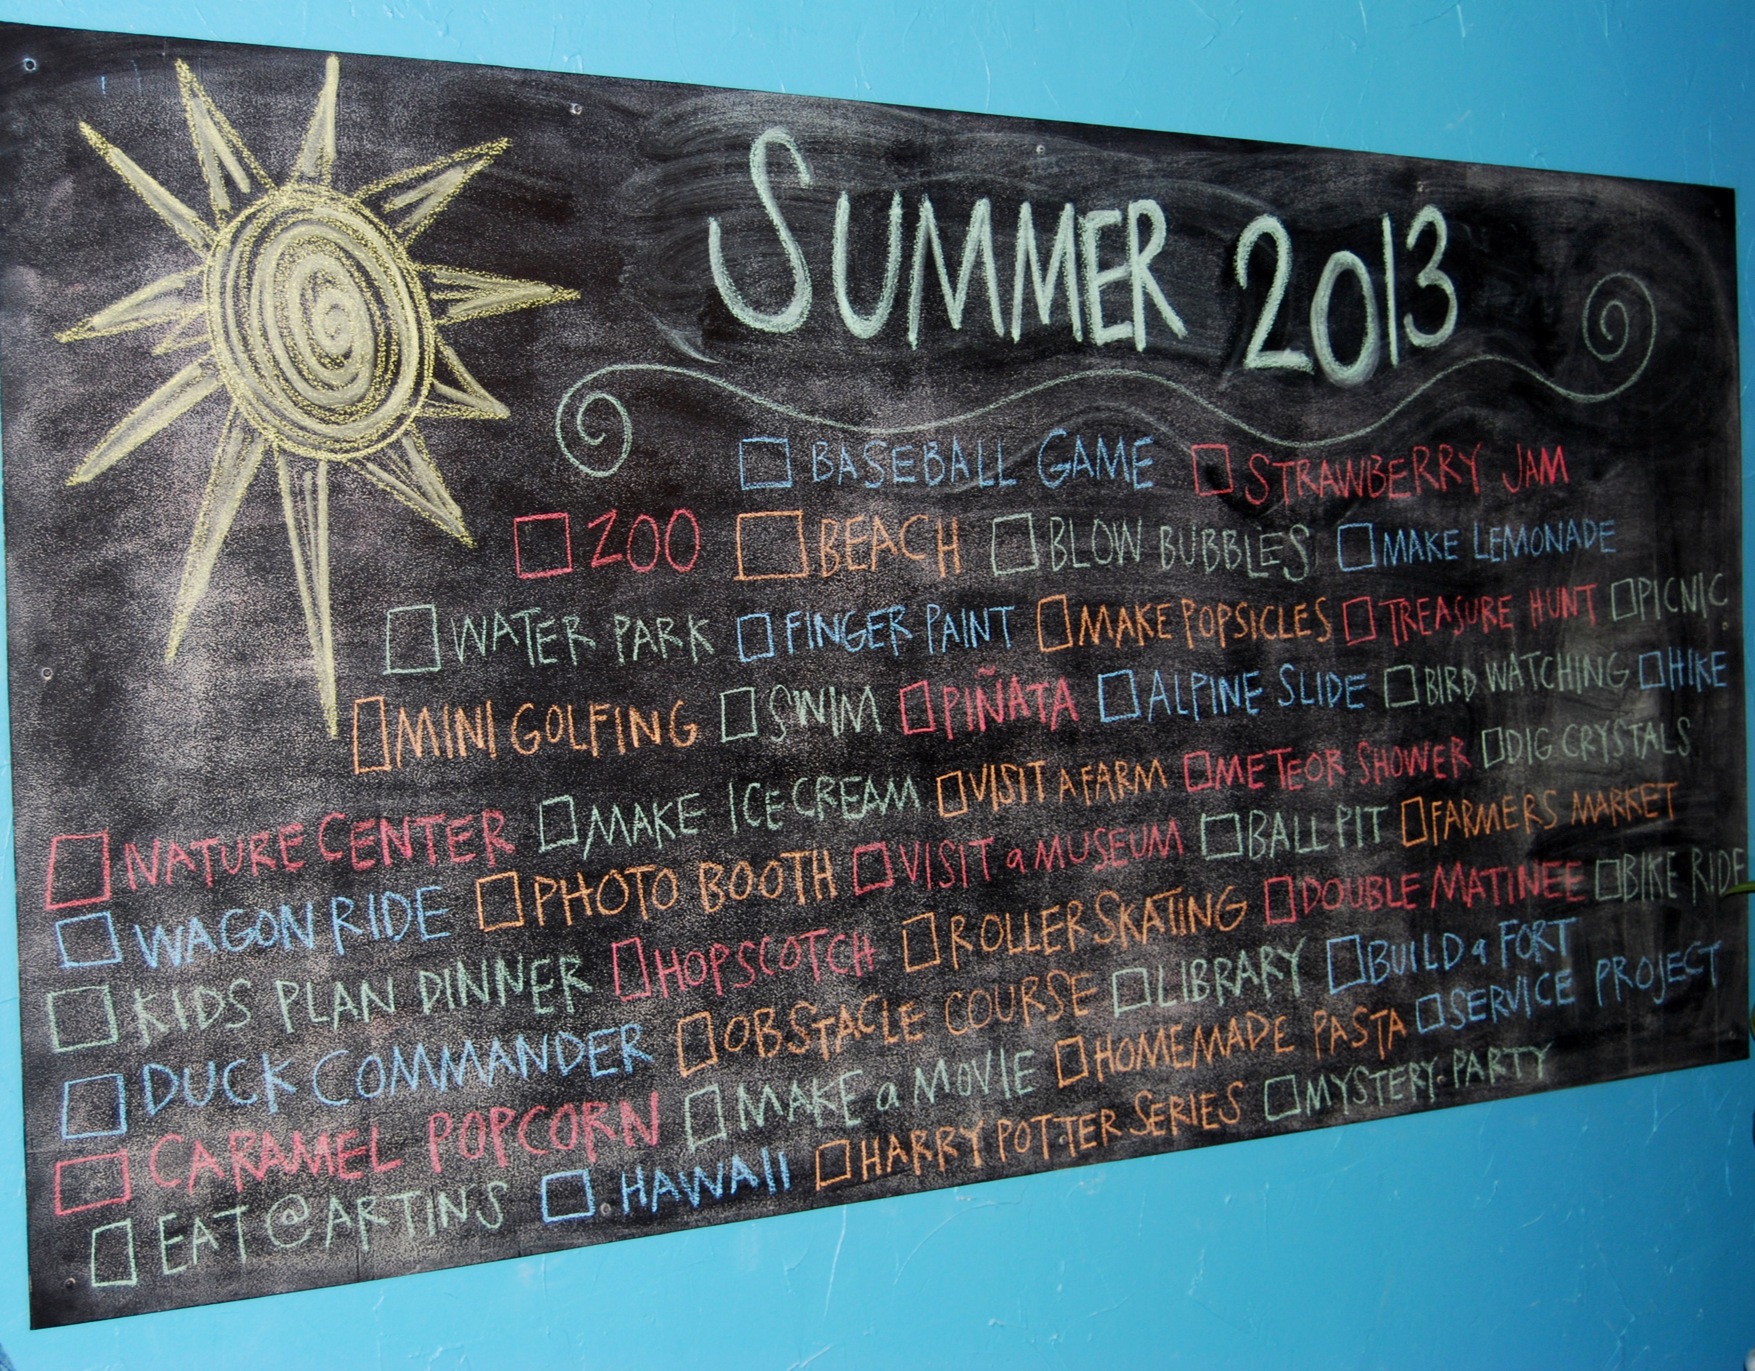 SUMMER 2013
☐ BASEBALL GAME ☐ STRAWBERRY JAM
☐ ZOO ☐ BEACH ☐ BLOW BUBBLES ☐ MAKE LEMONADE
☐ WATER PARK ☐ FINGER PAINT ☐ MAKE POPSICLES ☐ TREASURE HUNT ☐ PICNIC
☐ MINI GOLFING ☐ SWIM ☐ PIÑATA ☐ ALPINE SLIDE ☐ BIRD WATCHING ☐ HIKE
☐ NATURE CENTER ☐ MAKE ICE CREAM ☐ VISIT A FARM ☐ METEOR SHOWER ☐ DIG CRYSTALS
☐ WAGON RIDE ☐ PHOTO BOOTH ☐ VISIT a MUSEUM ☐ BALL PIT ☐ FARMERS MARKET
☐ KIDS PLAN DINNER ☐ HOPSCOTCH ☐ ROLLER SKATING ☐ DOUBLE MATINEE ☐ BIKE RIDE
☐ DUCK COMMANDER ☐ OBSTACLE COURSE ☐ LIBRARY ☐ BUILD a FORT
☐ CARAMEL POPCORN ☐ MAKE a MOVIE ☐ HOMEMADE PASTA ☐ SERVICE PROJECT
☐ EAT @ ARTINS ☐ HAWAII ☐ HARRY POTTER SERIES ☐ MYSTERY PARTY